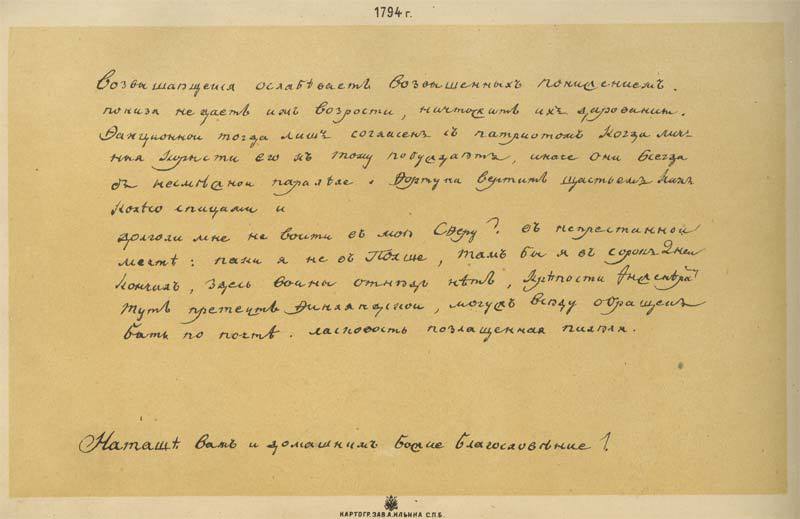 1794 г.
Возвышающейся ослабѣваетъ возвышенныхъ понисениемъ.
пониза не даетъ имъ возрости, ничтожитъ ихъ дарования.
тогда лишъ согласенъ съ патриотомъ когда лич-
ныя корысти его къ тому побуждаютъ, иначе они всегда
въ несмѣсной паралеле. Фортуна вертитъ щастьемъ какъ
колѣсо спицами и
долголи мне не войти въ мою Сферу? въ непрестанной
мечтѣ: пани я не въ Полше, тамъ бы я въ сорокъ дней
кончилъ, здесь войны отнюдь нѣтъ, крѣпости
тутъ претечутъ, могулъ всюду обращенъ
быть по почтѣ. ласковость позлащенная пилюля.
Наташѣ вамъ и домашнимъ Божие благословѣние!
КАРТОГР. ЗАВ. А. ИЛЬИНА С.П.Б.